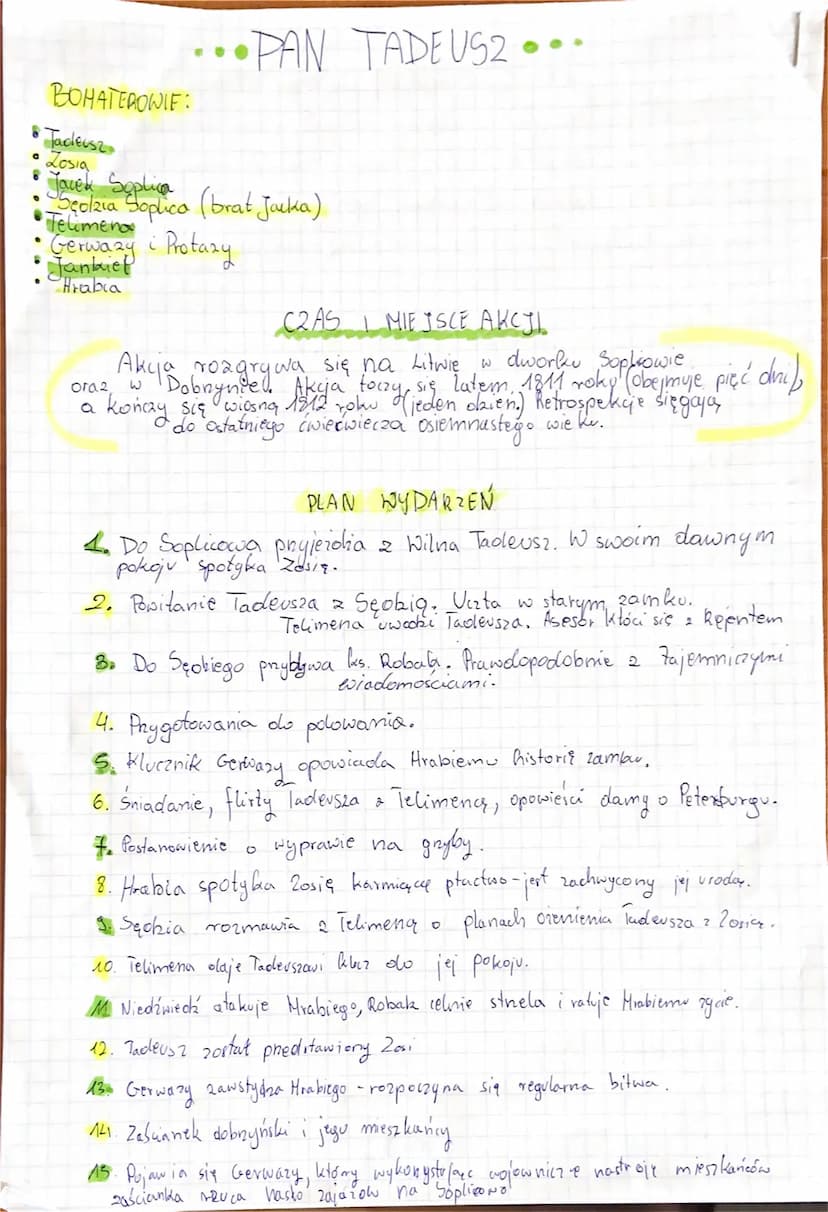 PAN TADEUSZ
BOHATEROWIE:
• Tadeusz
• Zosia
• Jacek Soplica
• Sędzia Soplica (brat Jacka)
• Telimena
• Gerwazy i Protazy
• Jankiel
• Hrabia
CZAS I MIEJSCE AKCJI
Akcja rozgrywa się na Litwie w dworku Soplicowie
oraz w Dobrzynce. Akcja toczy się latem 1811 roku (obejmuje pięć dni),
a kończy się wiosną 1812 roku (jeden dzień.) Retrospekcje sięgają
do ostatniego ćwierćwiecza osiemnastego wieku.
PLAN WYDARZEŃ
1. Do Soplicowa przyjeżdża z Wilna Tadeusz. W swoim dawnym
pokoju spotyka Zosię.
2. Powitanie Tadeusza z Sędzią. Uczta w starym zamku.
Telimena uwodzi Tadeusza. Asesor kłóci się z Rejentem
3. Do Sędziego przybywa ks. Robak. Prawdopodobnie z tajemniczymi
wiadomościami.
4. Przygotowania do polowania.
5. Klucznik Gerwazy opowiada Hrabiemu historię zamku.
6. Śniadanie, flirty Tadeusza z Telimeną, opowieści damy o Petersburgu.
7. Postanowienie o wyprawie na grzyby.
8. Hrabia spotyka Zosię karmiącą ptactwo - jest zachwycony jej urodą.
9. Sędzia rozmawia z Telimeną o planach ożenienia Tadeusza z Zosią.
10. Telimena daje Tadeuszowi klucz do jej pokoju.
11. Niedźwiedź atakuje Hrabiego, Robak celnie strzela i ratuje Hrabiemu życie.
12. Tadeusz został przedstawiony Zosi
13. Gerwazy zawstydza Hrabiego - rozpoczyna się regularna bitwa.
14. Zaścianek dobrzyński i jego mieszkańcy
15. Pojawia się Gerwazy, który wykorzystując wojownicze nastroje mieszkańców
zaścianka rzuca hasło zajazdów na Soplicowo